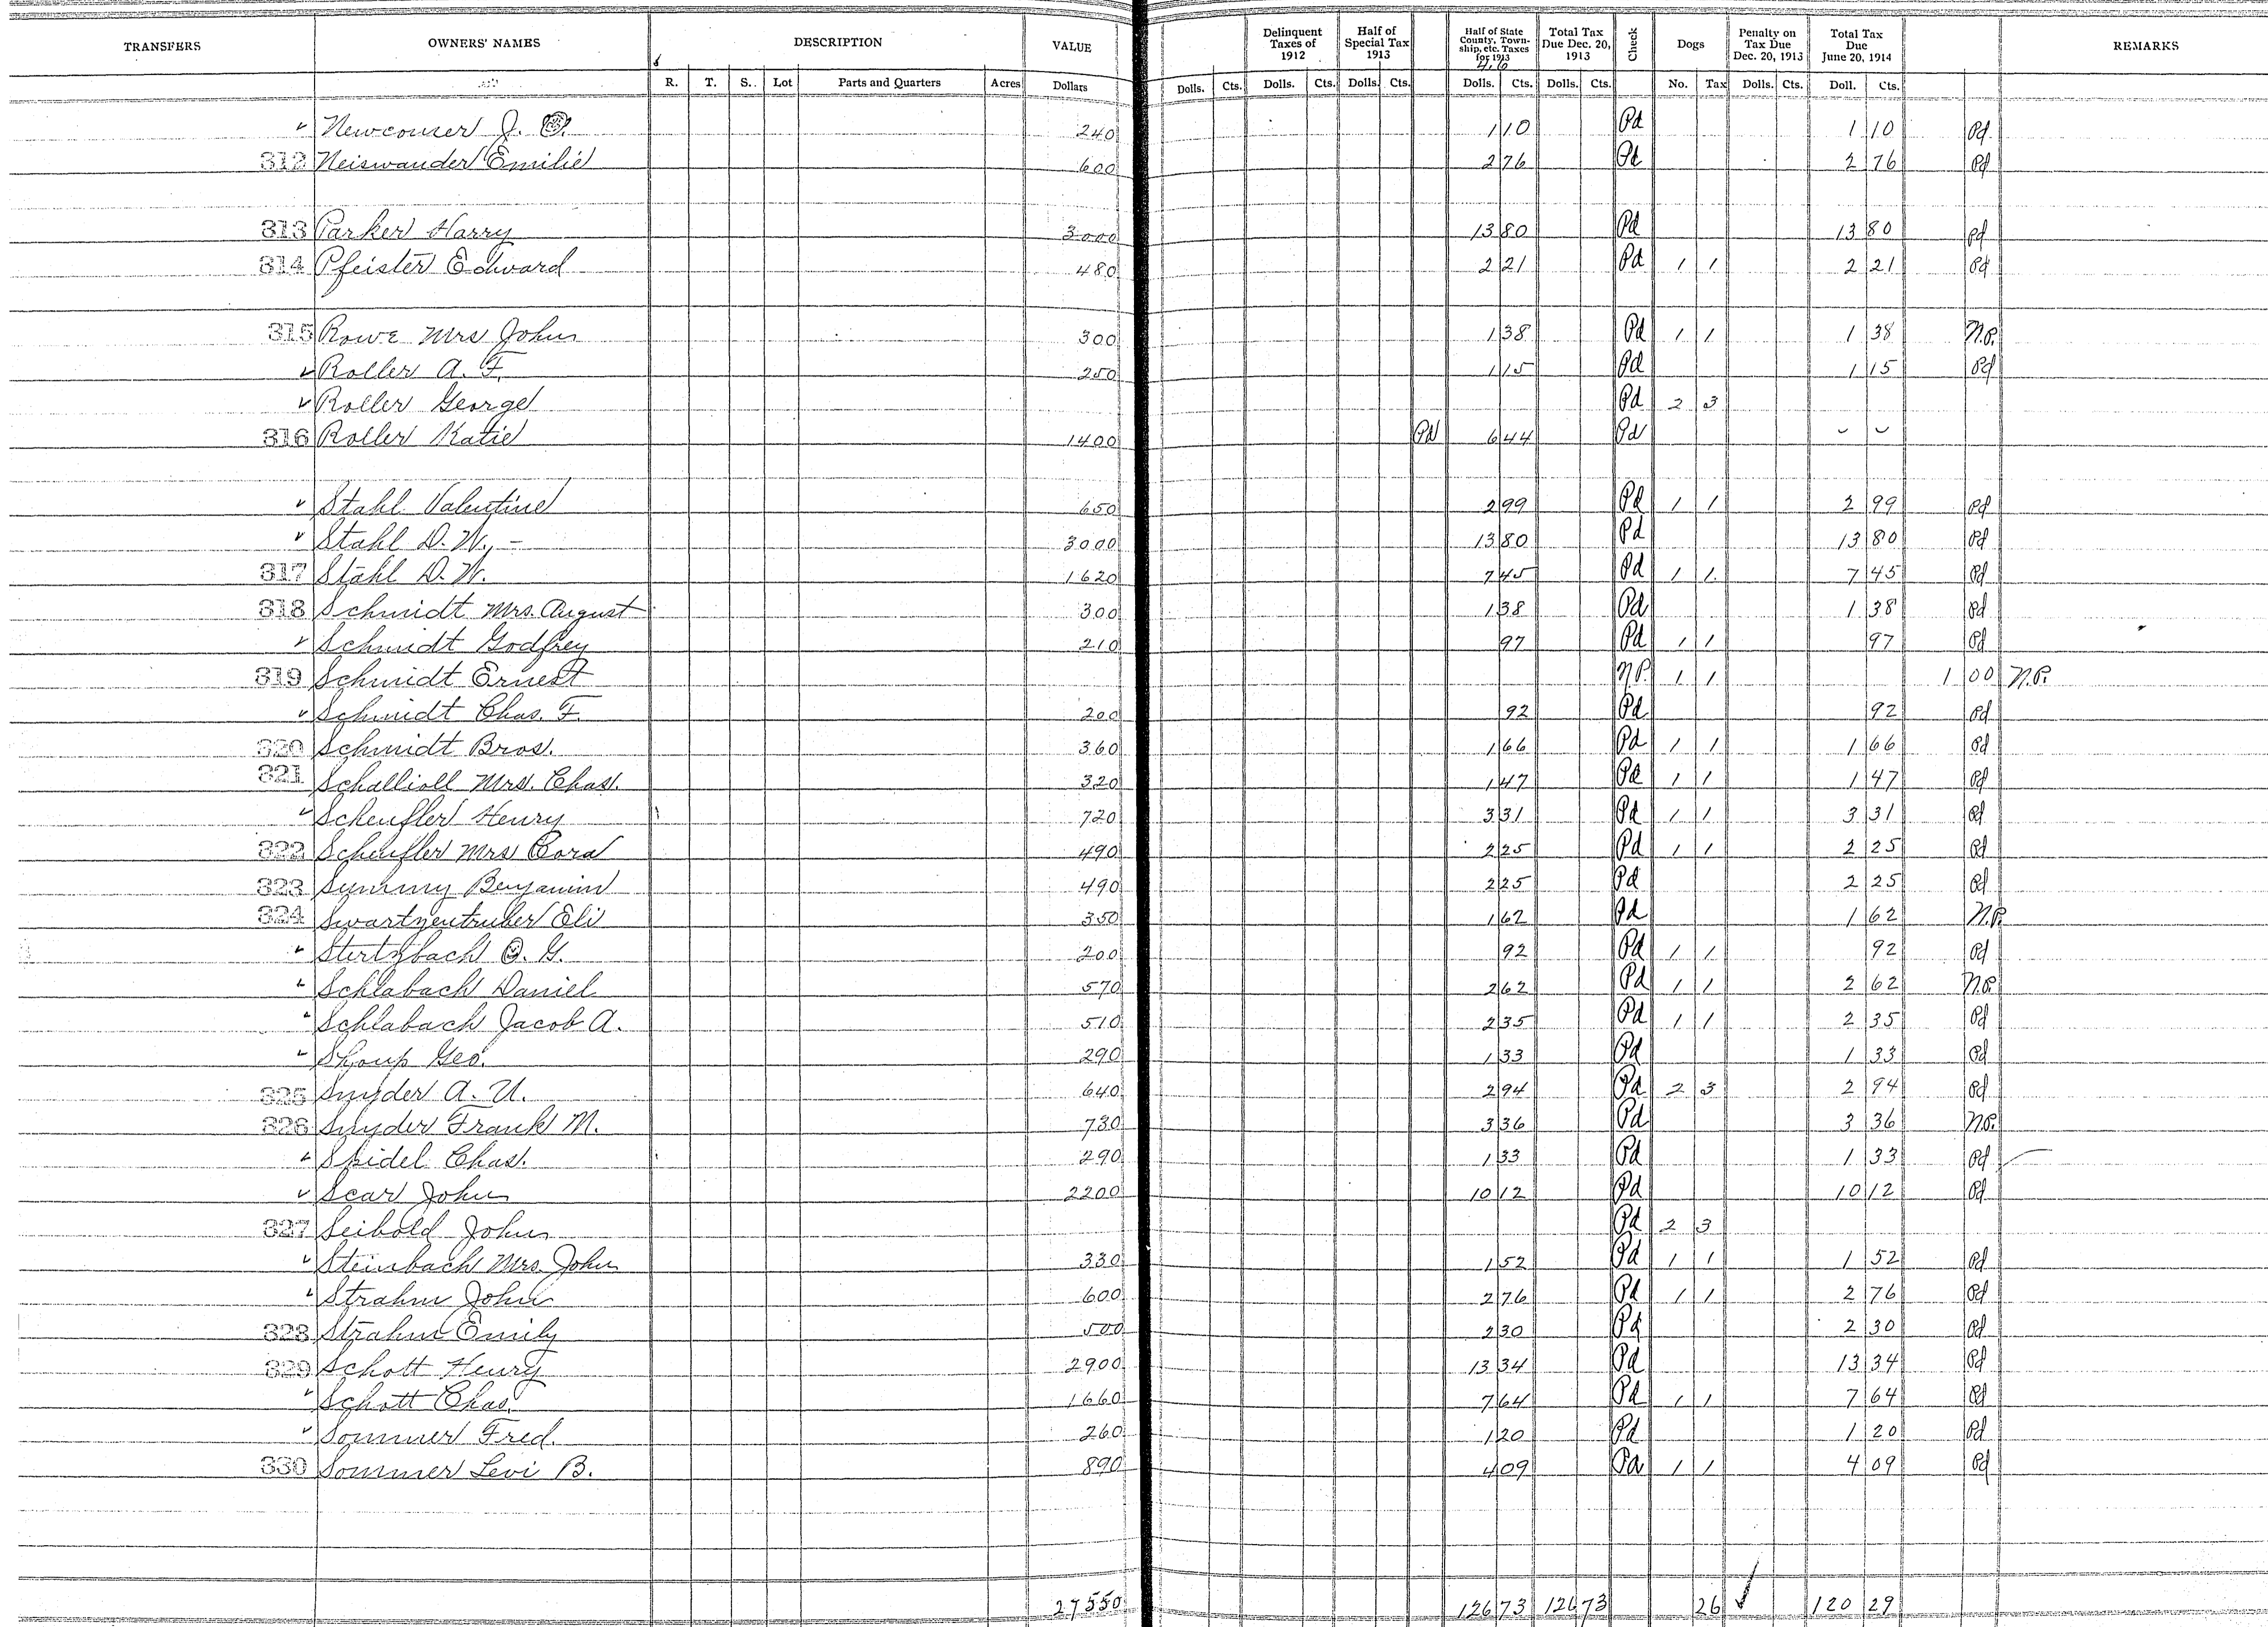 TRANSFERS OWNERS' NAMES DESCRIPTION VALUE Delinquent Taxes of 1912 Half of Special Tax 1913 Half of State County, Township, etc. Taxes for 1913 Total Tax Due Dec. 20, 1913 Check Dogs Penalty on Tax Due Dec. 20, 1913 Total Tax Due June 20, 1914 REMARKS
4.6
R. T. S. Lot Parts and Quarters Acres Dollars Dolls. Cts. Dolls. Cts. Dolls. Cts. Dolls. Cts. Dolls. Cts. No. Tax Dolls. Cts. Doll. Cts.
✓ Newcomer J. 240 1 10 Pd 1 10 Pd
312 Neiswander Emilie 600 2 76 Pd 2 76 Pd
313 Parker Harry 3000 13 80 Pd 13 80 Pd
314 Pfeister Edward 480 2 21 Pd 1 1 2 21 Pd
315 Rowe Mrs John 300 1 38 Pd 1 1 1 38 N.P.
✓ Roller A. F. 250 1 15 Pd 1 15 Pd
✓ Roller George Pd 2 3
316 Roller Katie 1400 Pd 6 44 Pd
✓ Stahl Valentine 650 2 99 Pd 1 1 2 99 Pd
✓ Stahl D. W. - 3000 13 80 Pd 13 80 Pd
317 Stahl D. W. 1620 7 45 Pd 1 1 7 45 Pd
318 Schmidt Mrs. August 300 1 38 Pd 1 38 Pd
✓ Schmidt Godfrey 210 97 Pd 1 1 97 Pd
319 Schmidt Ernest N.P. 1 1 1 00 N.P.
✓ Schmidt Chas. F. 200 92 Pd 92 Pd
320 Schmidt Bros. 360 1 66 Pd 1 1 1 66 Pd
321 Schallioll Mrs. Chas. 320 1 47 Pd 1 1 1 47 Pd
✓ Scheufler Henry 720 3 31 Pd 1 1 3 31 Pd
322 Scheufler Mrs Cora 490 2 25 Pd 1 1 2 25 Pd
323 Benjamin 490 2 25 Pd 2 25 Pd
324 Swartzentruber Eli 350 1 62 Pd 1 62 N.P.
✓ Stertzbach G. 200 92 Pd 1 1 92 Pd
✓ Schlabach Daniel 570 2 62 Pd 1 1 2 62 N.P.
✓ Schlabach Jacob A. 510 2 35 Pd 1 1 2 35 Pd
✓ Shoup Geo. 290 1 33 Pd 1 33 Pd
325 Snyder A. U. 640 2 94 Pd 2 3 2 94 Pd
326 Snyder Frank M. 730 3 36 Pd 3 36 N.P.
✓ Spidel Chas. 290 1 33 Pd 1 33 Pd
✓ Scar John 2200 10 12 Pd 10 12 Pd
327 Seibold John Pd 2 3
✓ Steinbach Mrs. John 330 1 52 Pd 1 1 1 52 Pd
✓ Strahm John 600 2 76 Pd 1 1 2 76 Pd
328 Strahm Emily 500 2 30 Pd 2 30 Pd
329 Schott Henry 2900 13 34 Pd 13 34 Pd
✓ Schott Chas. 1660 7 64 Pd 1 1 7 64 Pd
✓ Sommer Fred. 260 1 20 Pd 1 20 Pd
330 Sommer Levi B. 890 4 09 Pd 1 1 4 09 Pd
27550 126 73 126 73 26 ✓ 120 29